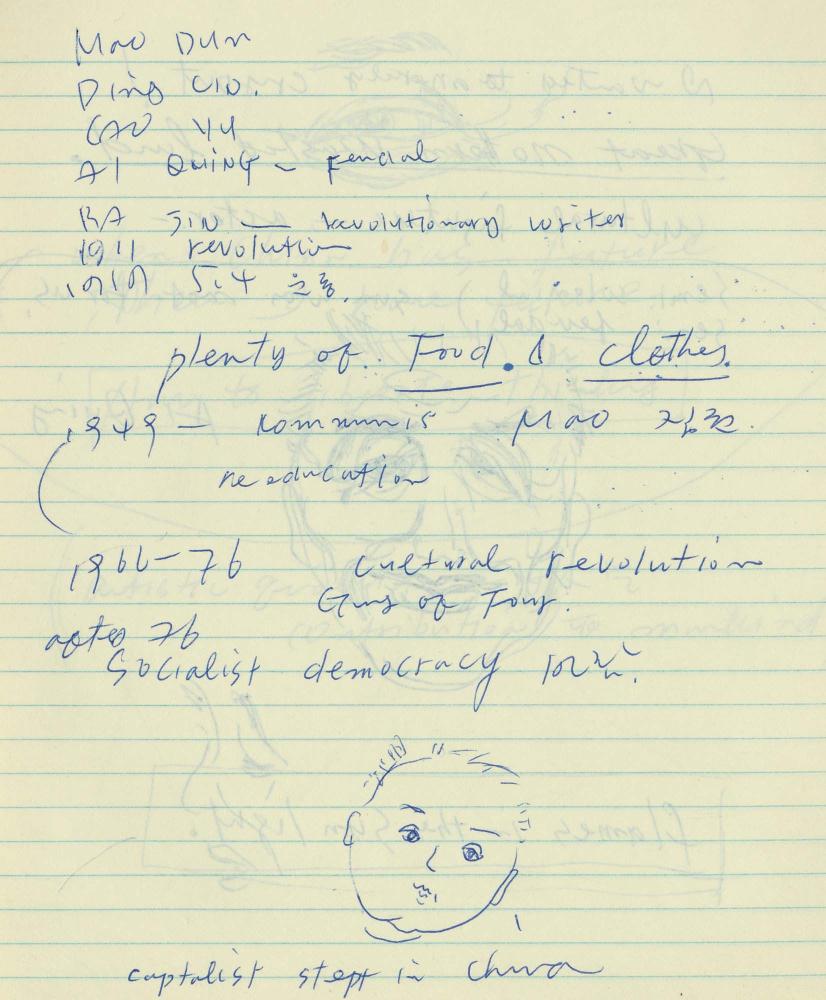 Mao Dun
Ding
CAO YU
AI QUING - Feudal
BA JIN — revolutionary writer
1911 revolution
1919 5.4 운동.
plenty of.. Food. & clothes.
1949 — kommunis Mao 집권.
reeducation
1966-76 cultural revolution
Gang of Four.
after 76
Socialist democracy
captalist stept in China